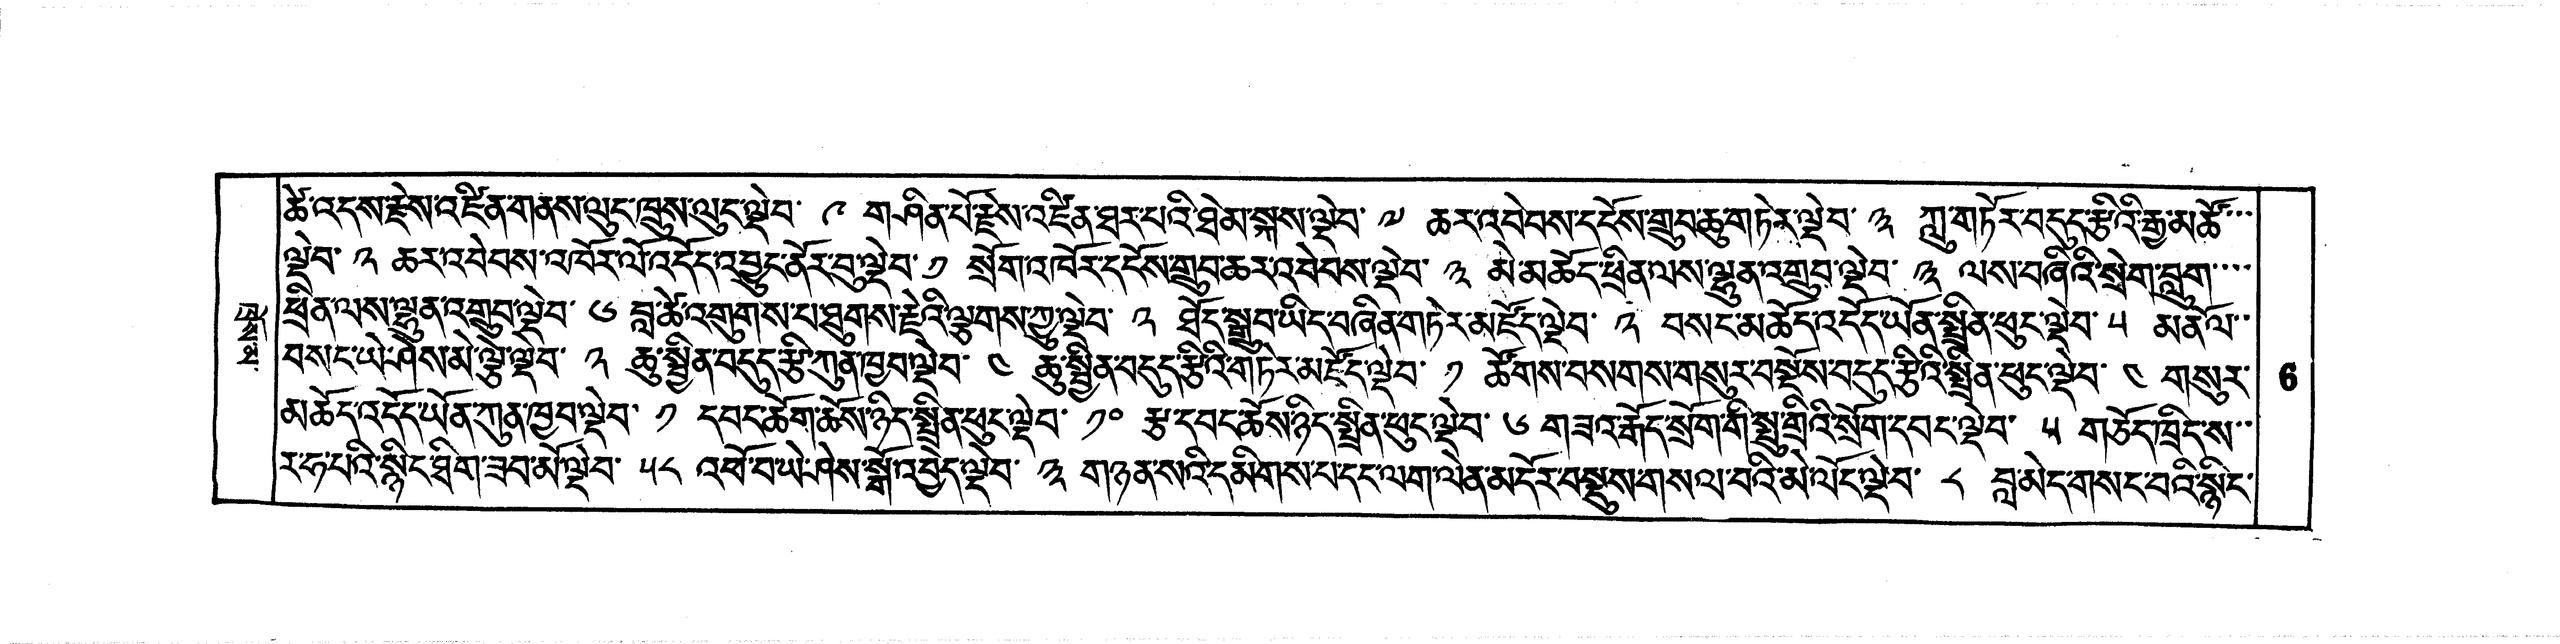 ཚེ་འདས་རྗེས་འཛིན་གནས་ལུང་ཁྲུས་ལུང་ལྡེབ་ ༩ གཤིན་པོ་རྗེས་འཛིན་ཐར་པའི་ཐེམ་སྐས་ལྡེབ་ ༧ ཆར་འབེབས་དངོས་གྲུབ་ཆུ་གཏེར་ལྡེབ་ ༣ ཀླུ་གཏོར་བདུད་རྩིའི་རྒྱ་མཚོ་་་
ལྡེབ་ ༢ ཆར་འབེབས་འཁོར་ལོ་འདོད་འབྱུང་ནོར་བུ་ལྡེབ་ ༡ སྲོག་འཁོར་དངོས་གྲུབ་ཆར་འབེབས་ལྡེབ་ ༣ མེ་མཆོད་ཕྲིན་ལས་ལྷུན་འགྲུབ་ལྡེབ་ ༣ ལས་བཞིའི་སྲེག་བླུག་་་་
ཕྲིན་ལས་ལྷུན་འགྲུབ་ལྡེབ་ ༦ བླ་ཚེ་འགུགས་པ་ཐུགས་རྗེའི་ལྕགས་ཀྱུ་ལྡེབ་ ༢ ཐོད་སྒྲུབ་ཡིད་བཞིན་གཏེར་མཛོད་ལྡེབ་ ༢ བསང་མཆོད་འདོད་ཡོན་སྤྲིན་ཕུང་ལྡེབ་ ༥ མནོལ་་
བསང་ཡེ་ཤེས་མེ་ལྕེ་ལྡེབ་ ༢ ཆུ་སྦྱིན་བདུད་རྩི་ཀུན་ཁྱབ་ལྡེབ་ ༤ ཆུ་སྦྱིན་བདུད་རྩིའི་གཏེར་མཛོད་ལྡེབ་ ༡ ཚོགས་བསགས་གསུར་བསྔོས་བདུད་རྩིའི་སྤྲིན་ཕུང་ལྡེབ་ ༤ གསུར་
མཆོད་འདོད་ཡོན་ཀུན་ཁྱབ་ལྡེབ་ ༡ དབང་ཆོག་ཆོས་ཉིད་སྤྲིན་ཕུང་ལྡེབ་ ༡༠ རྩ་དབང་ཆོས་ཉིད་སྤྲིན་ཕུང་ལྡེབ་ ༦ གཟའ་རྒོད་སྲོག་གི་སྤུ་གྲིའི་སྲོག་དབང་ལྡེབ་ ༥ གཅོད་ཁྲིད་ས་་
ར་ཧ་པའི་སྙིང་ཐིག་ཟབ་མོ་ལྡེབ་ ༥༨ འཕོ་བ་ཡེ་ཤེས་སྒོ་འབྱེད་ལྡེབ་ ༣ གཉན་སའི་དམིགས་པ་དང་ལག་ལེན་མདོར་བསྡུས་གསལ་བའི་མེ་ལོང་ལྡེབ་ ༨ བླ་མེད་གསང་བའི་སྙིང་
6